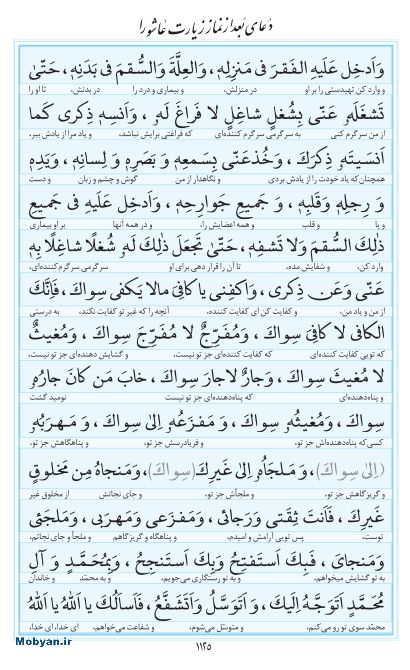 دعای بعد از نماز زیارت عاشورا
وَاَدخِل عَلَیهِ الفَقرَ فی مَنزِلِهِ، وَالعِلَّةَ وَالسُّقمَ فی بَدَنِهِ، حَتّیٰ
و وارد کن تهیدستی را بر او در منزلش، و بیماری و درد را در بدنش، تا او را
تَشغَلَهُ عَنّی بِشُغلٍ شاغِلٍ لا فَراغَ لَهُ، وَاَنسِهِ ذِکری کَما
از من سرگرم کنی به سرگرمی سرگرم کننده‌ای که فراغتی برایش نباشد، و یاد مرا از یادش ببر،
اَنسَیتَهُ ذِکرَکَ، وَخُذ عَنّی بِسَمعِهِ وَ بَصَرِهِ وَ لِسانِهِ، وَیَدِهِ
همچنان‌که یاد خودت را از یادش بردی و نگاهدار از من گوش و چشم و زبان و دست
وَ رِجلِهِ وَقَلبِهِ، وَ جَمیعِ جَوارِحِهِ، وَاَدخِل عَلَیهِ فی جَمیعِ
و پا و قلب و همه اعضایش را، و در همه آنها بر او بیماری
ذٰلِکَ السُّقمَ وَلا تَشفِهِ، حَتّیٰ تَجعَلَ ذٰلِکَ لَهُ شُغلًا شاغِلًا بِهِ
وارد کن، و شفایش مده، تا آن را قرار دهی برای او سرگرمی سرگرم کننده‌ای،
عَنّی وَعَن ذِکری، وَاکفِنی یا کافِیَ مالا یَکفی سِواکَ، فَاِنَّکَ
از من و یاد من، و کفایت کن ای کفایت کننده، آنچه را که غیر تو کفایت نکند، به درستی
الکافی لا کافِیَ سِواکَ، وَمُفَرِّجٌ لا مُفَرِّجَ سِواکَ، وَمُغیثٌ
که تویی کفایت کننده‌ای که کفایت کننده‌ای جز تو نیست، و گشایش دهنده‌ای جز تو نیست،
لا مُغیثَ سِواکَ، وَجارٌ لاجارَ سِواکَ، خابَ مَن کانَ جارُهُ
و پناه‌دهنده‌ای که پناه‌دهنده‌ای جز تو نیست، نومید گشت
سِواکَ، وَمُغیثُهُ سِواکَ، وَ مَفزَعُهُ اِلیٰ سِواکَ، وَ مَهرَبُهُ
کسی‌که پناه‌دهنده‌اش جز تو، و فریادرسش جز تو، و پناهگاهش جز تو،
(اِلیٰ سِواکَ)، وَ مَلجَاُهُ اِلیٰ غَیرِکَ (سِواکَ)، وَمَنجاهُ مِن مَخلوقٍ
و گریزگاهش جز تو، و ملجأش جز تو، و جای نجاتش از مخلوق غیر
غَیرِکَ، فَاَنتَ ثِقَتی وَرَجائی، وَمَفزَعی وَمَهرَبی، وَمَلجَئی
توست، پس تویی آرامش و امیدم، و پناهگاه و گریزگاهم و ملجأ و جای نجاتم،
وَمَنجایَ، فَبِکَ اَستَفتِحُ وَبِکَ اَستَنجِحُ، وَبِمُحَمَّدٍ وَ آلِ
به تو گشایش میخواهم، و به تو رستگاری می‌جویم، و به محمّد و خاندان
مُحَمَّدٍ اَتَوَجَّهُ اِلَیکَ، وَ اَتَوَسَّلُ وَاَتَشَفَّعُ، فَاَسأَلُکَ یا اَللهُ یا اَللهُ
محمّد سوی تو رو می‌کنم، و متوسّل می‌شوم، و شفاعت می‌خواهم، ای خدا، ای خدا،
۱۱۲۵
Mobyan.ir